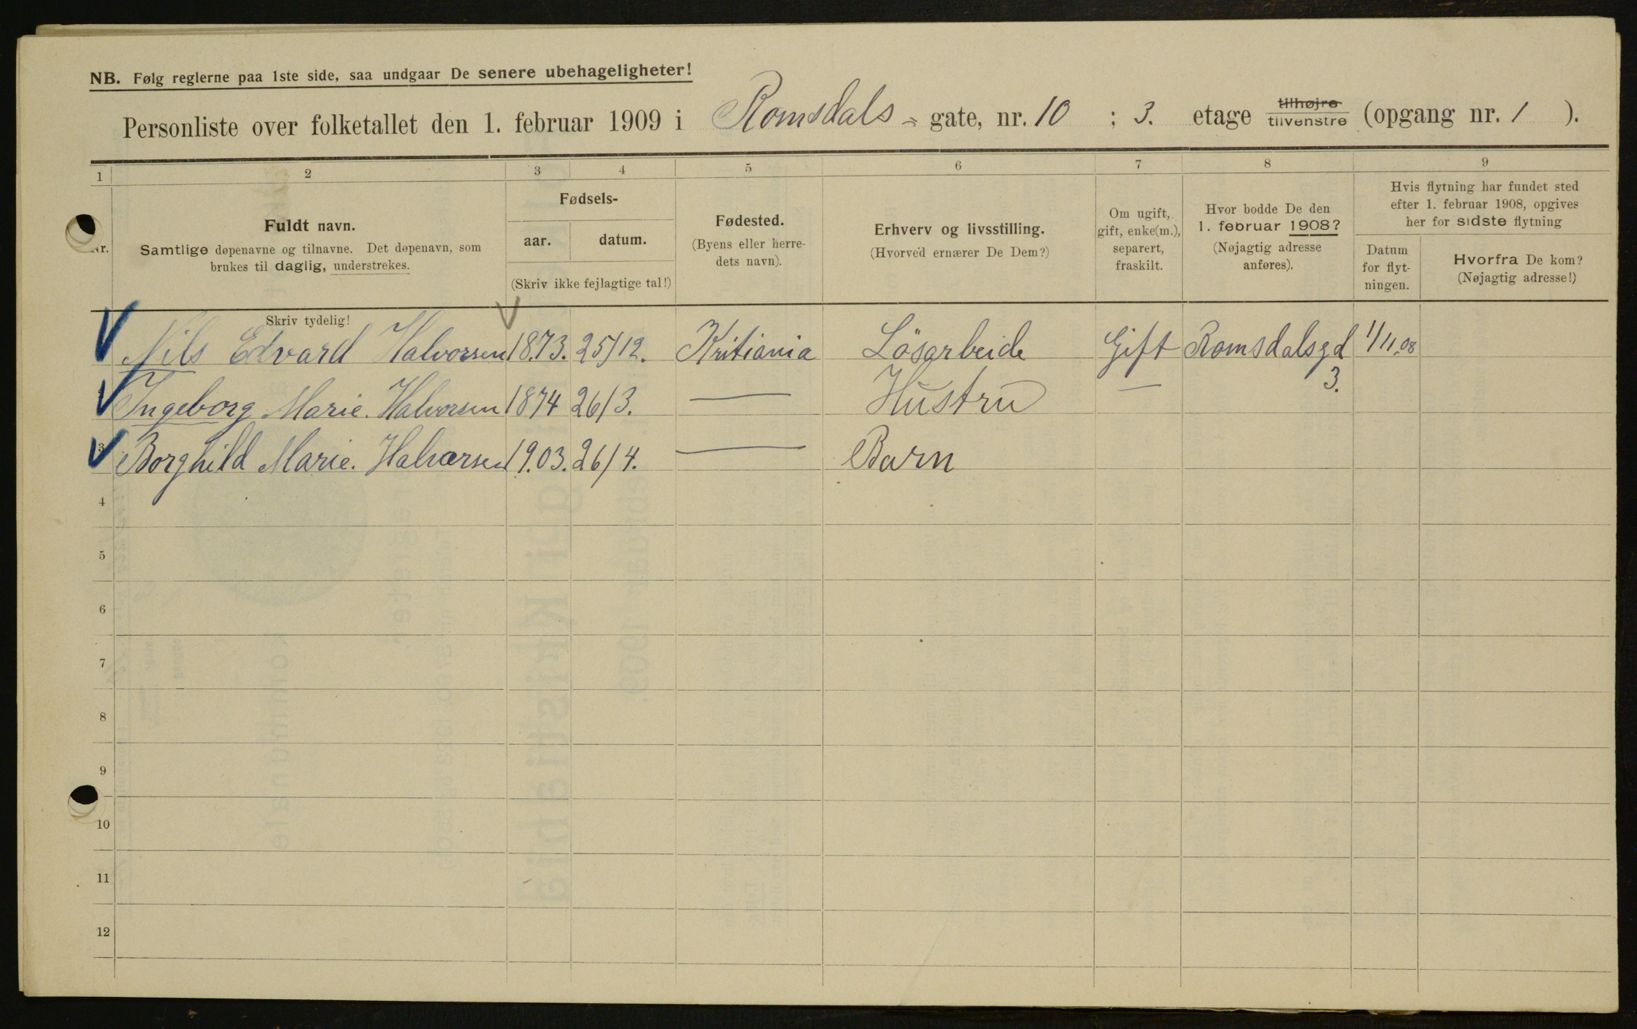 NB. Følg reglerne paa 1ste side, saa undgaar De senere ubehageligheter!
Personliste over folketallet den 1. februar 1909 i Romsdals- gate, nr. 10 ; 3. etage tilhøjre tilvenstre (opgang nr. 1 ).
1 2 3 4 5 6 7 8 9
Fuldt navn.
Samtlige døpenavne og tilnavne. Det døpenavn, som
brukes til daglig, understrekes.
Fødsels-
aar. datum.
(Skriv ikke fejlagtige tal!)
Fødested.
(Byens eller herre-
dets navn).
Erhverv og livsstilling.
(Hvorved ernærer De Dem?)
Om ugift,
gift, enke(m.),
separert,
fraskilt.
Hvor bodde De den
1. februar 1908?
(Nøjagtig adresse
anføres).
Hvis flytning har fundet sted
efter 1. februar 1908, opgives
her for sidste flytning
Datum
for flyt-
ningen.
Hvorfra De kom?
(Nøjagtig adresse!)
Skriv tydelig!
Nils Edvard Halvorsen 1873. 25/12. Kritiania Løsarbeide Gift Romsdalsgd 3. 1/11,08
Ingeborg Marie. Halvorsen 1874 26/3. — Hustru —
3 Borghild Marie. Halvorsen 19.03. 26/4. — Barn
4
5
6
7
8
9
10
11
12